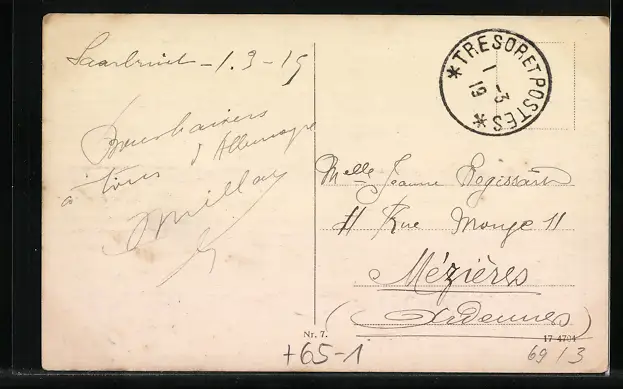 Saarbruck - 1.3-19
Bons baisers
d'Allemagne
à tous
Melle Jeanne Rogissart
11 Rue Monge 11
Mézières
(Ardennes)
* TRESOR ET POSTES *
1 -3
19
Nr. 7.
17 4704
+65-1
69/3